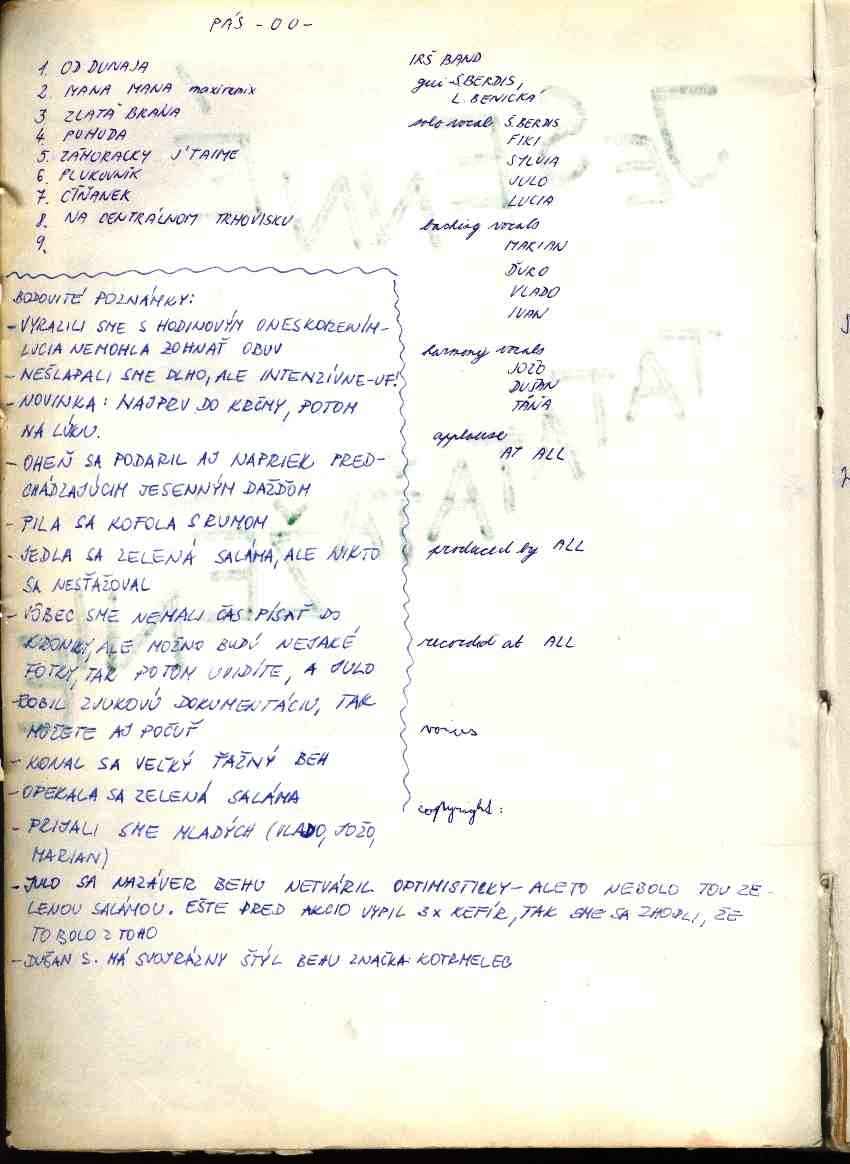 PÁS - 00 -
1. OD DUNAJA
2. MANA MANA maxiremix
3 ZLATÁ BRÁNA
4. POHODA
5. ZÁHORÁCKY J'TAIME
6. PLUKOVNÍK
7. CÍŇANEK
8. NA CENTRÁLNOM TRHOVISKU
9.
IRŠ BAND
gui Š.BERDIS,
L. BENICKÁ
solo vocal Š.BERDIS
FIKI
SYLVIA
JULO
LUCIA
backing vocals
MARIAN
ĎURO
VLADO
IVAN
harmony vocals
JOŽO
DUŠAN
TÁŇA
applause
AT ALL
produced by ALL
recorded at ALL
voices
copyright:
BODOVITÉ POZNÁMKY:
- VYRAZILI SME S HODINOVÝM ONESKORENÍM-
LUCIA NEMOHLA ZOHNAŤ OBUV
- NEŠLAPALI SME DLHO, ALE INTENZÍVNE-UF!
- NOVINKA: NAJPRV DO KRČMY, POTOM
NA LÚKU.
- OHEŇ SA PODARIL AJ NAPRIEK PRED-
CHÁDZAJÚCIM JESENNÝM DAŽĎOM
- PILA SA KOFOLA S RUMOM
- JEDLA SA ZELENÁ SALÁMA, ALE NIKTO
SA NESŤAŽOVAL
- VÔBEC SME NEMALI ČAS PÍSAŤ DO
KRONKY, ALE MOŽNO BUDÚ NEJAKÉ
FOTKY, TAK POTOM UVIDÍTE, A JULO
ROBIL ZVUKOVÚ DOKUMENTÁCIU, TAK
MÔŽETE AJ POČUŤ
- KONAL SA VEĽKÝ ŤAŽNÝ BEH
- OPEKALA SA ZELENÁ SALÁMA
- PRIJALI SME MLADÝCH (VLADO, JOŽO,
MARIAN)
- JULO SA NAZÁVER BEHU NETVÁRIL OPTIMISTICKY - ALE TO NEBOLO TOU ZE-
LENOU SALÁMOU. EŠTE PRED AKCIO VYPIL 3x KEFÍR, TAK SME SA ZHODLI, ŽE
TO BOLO Z TOHO
- DUŠAN S. MÁ SVOJRÁZNY ŠTÝL BEHU ZNAČKA: KOTRMELEC